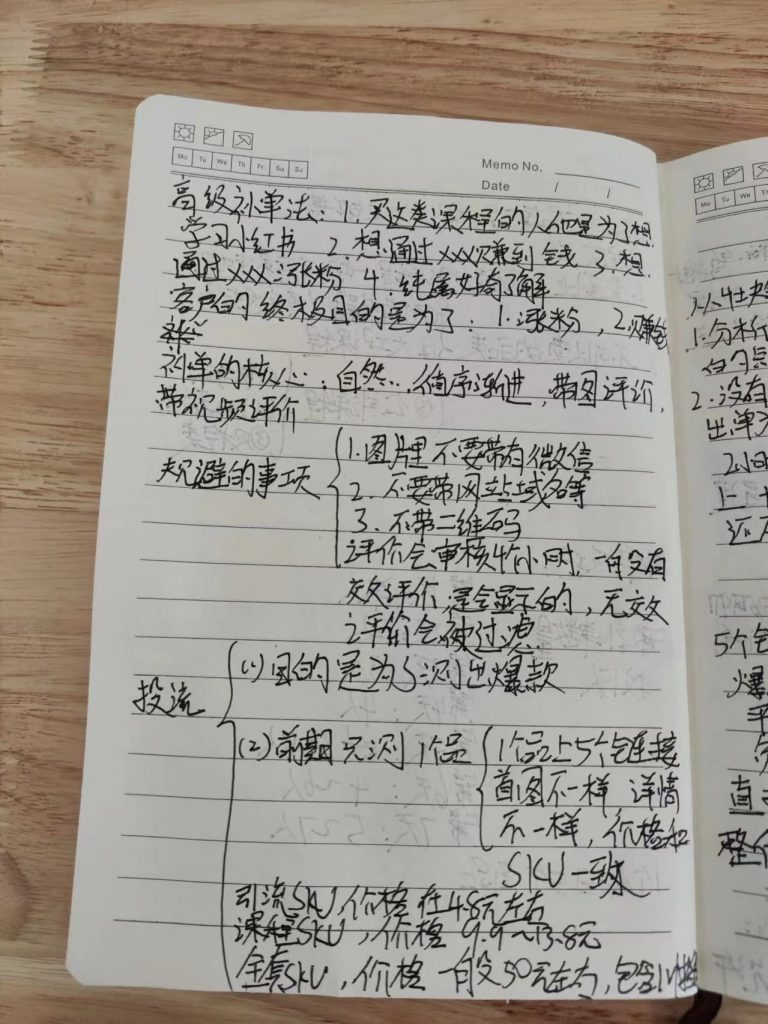 Mo Tu We Th Fr Sa Su
Memo No.
Date / /
高级补单法：1. 买这类课程的人他是为了想
学习小红书 2. 想通过xxx赚到钱 3. 想
通过xxx涨粉 4. 纯属好奇了解
客户的终极目的是为了：1. 涨粉，2. 赚钱
补单的核心：自然…，循序渐进，带图评价，
带视频评价
规避的事项
1. 图片里不要带有微信
2. 不要带网站域名等
3. 不带二维码
评价会审核4个小时，一般有
效评价，是会显示的，无效
评价会被过滤
投流
(1) 目的是为了测出爆款
(2) 前期只测1个品
1个品上5个链接
首图不一样 详情
不一样，价格和
SKU一致
引流SKU，价格在4.8元左右
课程SKU，价格9.9~13.8元
全套SKU，价格一般50元左右，包含
Mo Tu We Th
1. 分析
2. 没有
出单
5个
爆
平
直
整个